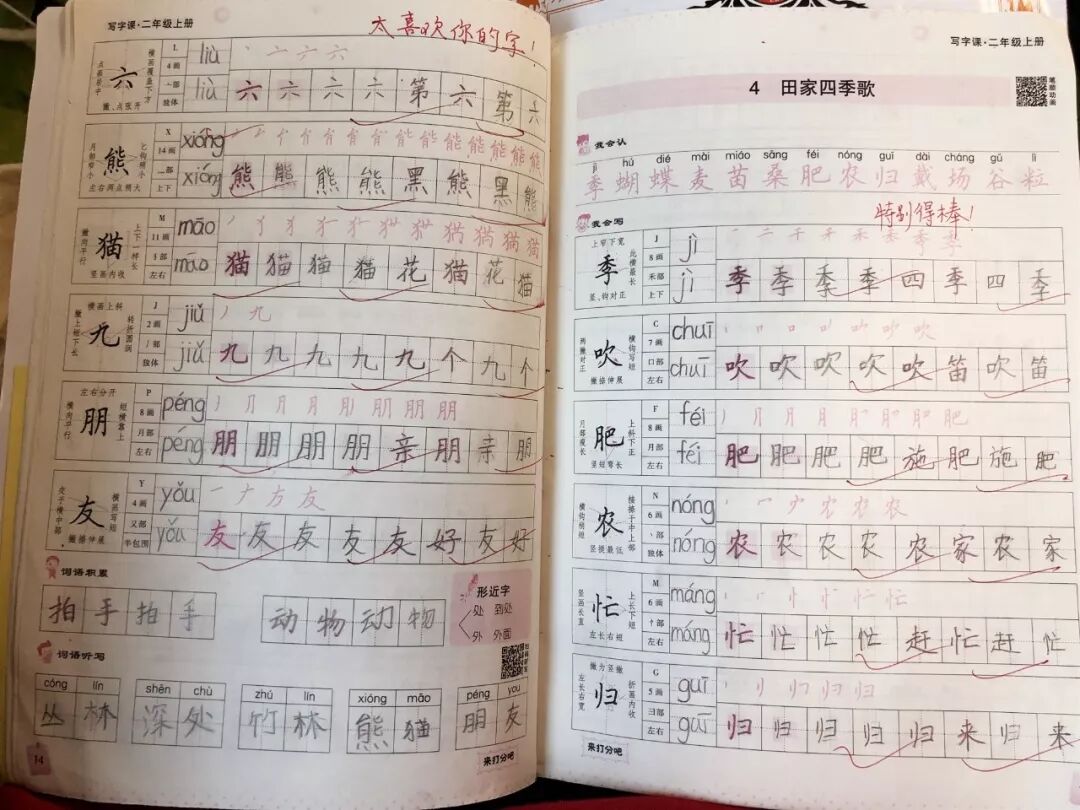 写字课·二年级上册
太喜欢你的字！
六
点画居中
横画覆盖下方
撇、点张开
亠
4画
亠部
独体
liù
liù
丶 亠 六 六
六 六 六 六 第 六 第 六
熊
左右两点稍大
X
14画
灬部
上下
xióng
xióng
熊 熊 熊 熊 黑 熊 黑 熊
猫
撇向平行
上下一样长
竖画内收
M
11画
犭部
左右
māo
māo
猫 猫 猫 猫 花 猫 花 猫
九
横画上斜
撇上短下长
转折圆润
J
2画
丿部
独体
jiǔ
jiǔ
丿 九
九 九 九 九 九 个 九 个
朋
左右分开
横向平行
短横靠上
P
8画
月部
左右
péng
péng
朋 朋 朋 朋 亲 朋 亲 朋
友
交于横中部
横画写短
撇捺伸展
Y
4画
又部
半包围
yǒu
yǒu
一 ナ 方 友
友 友 友 友 友 好 友 好
词语积累
拍 手 拍 手
动 物 动 物
形近字
处 到处
外 外面
词语听写
cóng lín
丛 林
shēn chù
深 处
zhú lín
竹 林
xióng māo
熊 猫
péng you
朋 友
来打分吧
14
写字课·二年级上册
4 田家四季歌
笔顺动画
我会认
jì hú dié mài miáo sāng féi nóng guī dài cháng gǔ lì
季 蝴 蝶 麦 苗 桑 肥 农 归 戴 场 谷 粒
特别得棒！
我会写
季
上窄下宽
此横最长
竖、钩对正
J
8画
禾部
上下
jì
jì
季 季 季 季 四 季 四 季
吹
两撇对正
横钩写短
撇捺伸展
C
7画
口部
左右
chuī
chuī
吹 吹 吹 吹 吹 笛 吹 笛
肥
月部瘦长
上斜下正
竖短弯长
F
8画
月部
左右
féi
féi
肥 肥 肥 肥 施 肥 施 肥
农
横钩稍短
接撇于中上部
竖提最低
N
6画
丶部
独体
nóng
nóng
农 农 农 农 农 家 农 家
忙
竖画长直
上长下短
左长右短
M
6画
忄部
左右
máng
máng
忙 忙 忙 忙 赶 忙 赶 忙
归
撇为竖撇
左长右宽
折画内收
G
5画
彐部
左右
guī
guī
归 归 归 归 归 来 归 来
来打分吧